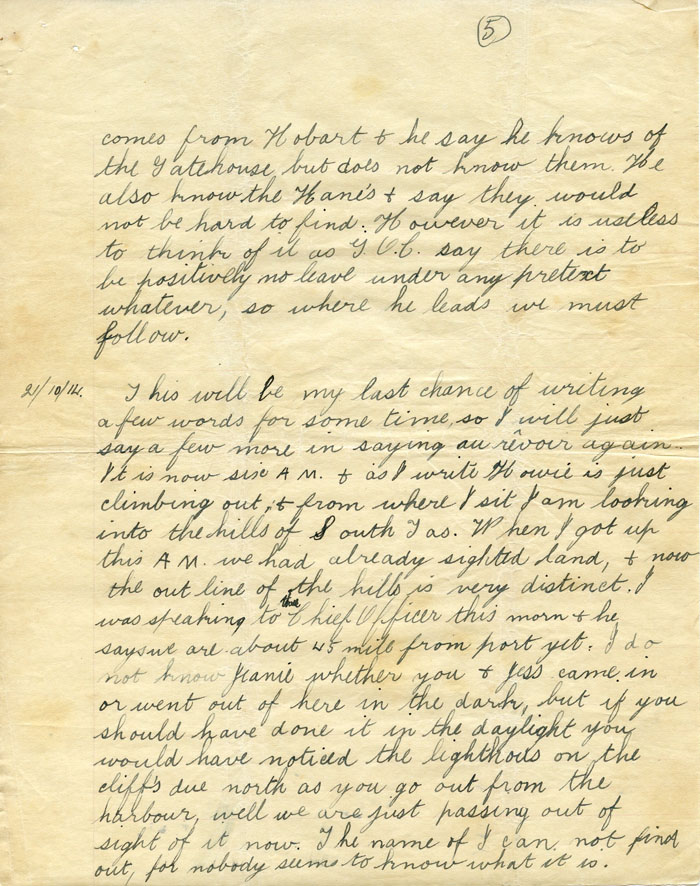 5
comes from Hobart & he say he knows of
the Gatehouse but does not know them. He
also know the Hane's & say they would
not be hard to find. However it is useless
to think of it as G.O.C. say there is to
be positively no leave under any pretext
whatever, so where he leads we must
follow.
21/10/14. This will be my last chance of writing
a few words for some time, so I will just
say a few more in saying au rêvoir again.
It is now six A.M. & as I write Howie is just
climbing out, & from where I sit I am looking
into the hills of South Tas. When I got up
this A.M. we had already sighted land, & now
the out line of the hills is very distinct. I
was speaking to the Chief Officer this morn & he
says we are about 45 mile from port yet. I do
not know Jeanie whether you & Jess came in
or went out of here in the dark, but if you
should have done it in the daylight you
would have noticed the lighthous on the
cliff's due north as you go out from the
harbour, well we are just passing out of
sight of it now. The name of I can not find
out, for nobody seems to know what it is.